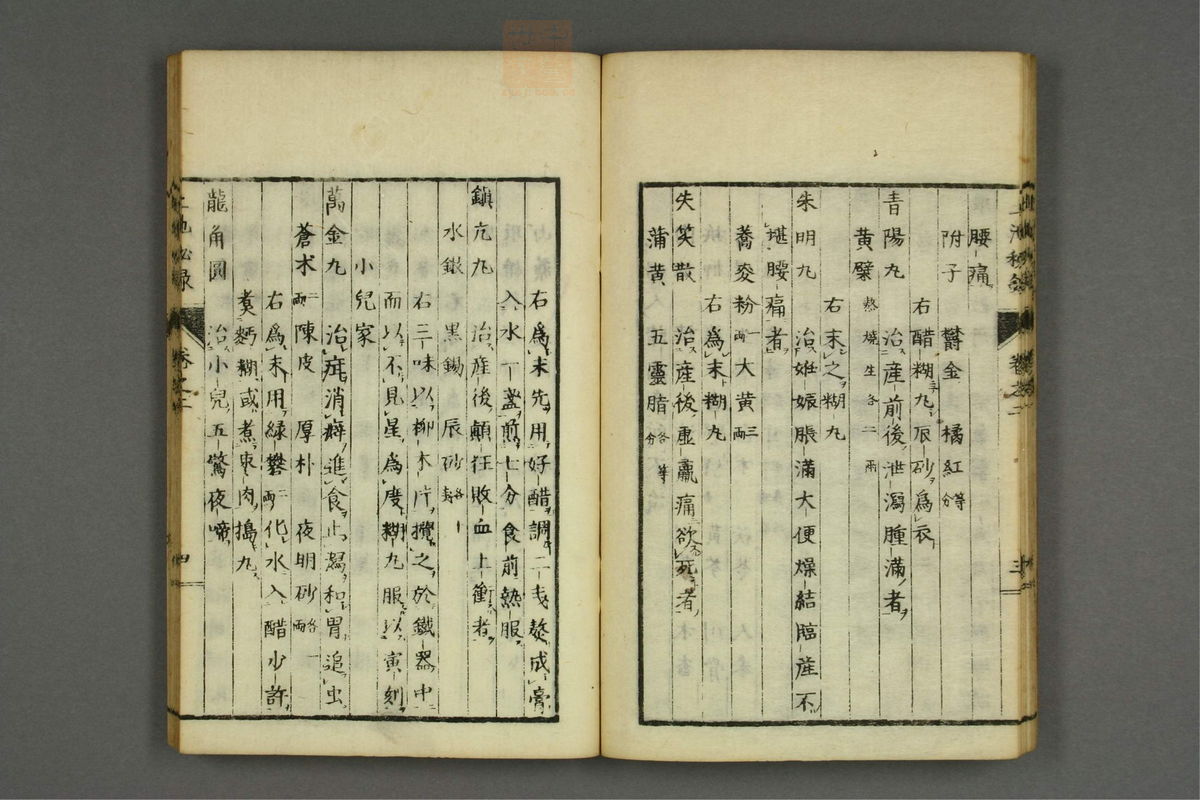 腰痛
附子　欝金　橘紅等分
右醋糊丸辰砂爲衣
青陽丸　治産前後泄瀉腫滿者
黄檗熬燒生各二兩
右末之糊丸
朱明丸　治妊娠脹滿大便燥結臨産不
堪腰痛者
蕎麥粉一兩大黄三兩
右爲末糊丸
失笑散　治産後虚羸痛欲死者
蒲黄　五靈脂各等分
卷之二　三
右爲末先用好醋調二戔熬成膏
入水一盞煎七分食前熱服
鎭亢丸　治産後顛狂敗血上衝者
水銀　黒錫　辰砂各一
右三味以柳木片攪之於鐵器中
而以不見星爲度糊丸服以寅刻
小兒家
萬金丸　治疳消癖進食止瀉和胃追虫
蒼朮二兩陳皮　厚朴　夜明砂各一兩
右爲末用緑礬二兩化水入醋少許
煑麪糊或煮棗肉搗丸
龍角圓　治小兒五驚夜啼
上池秘録　卷之二　四